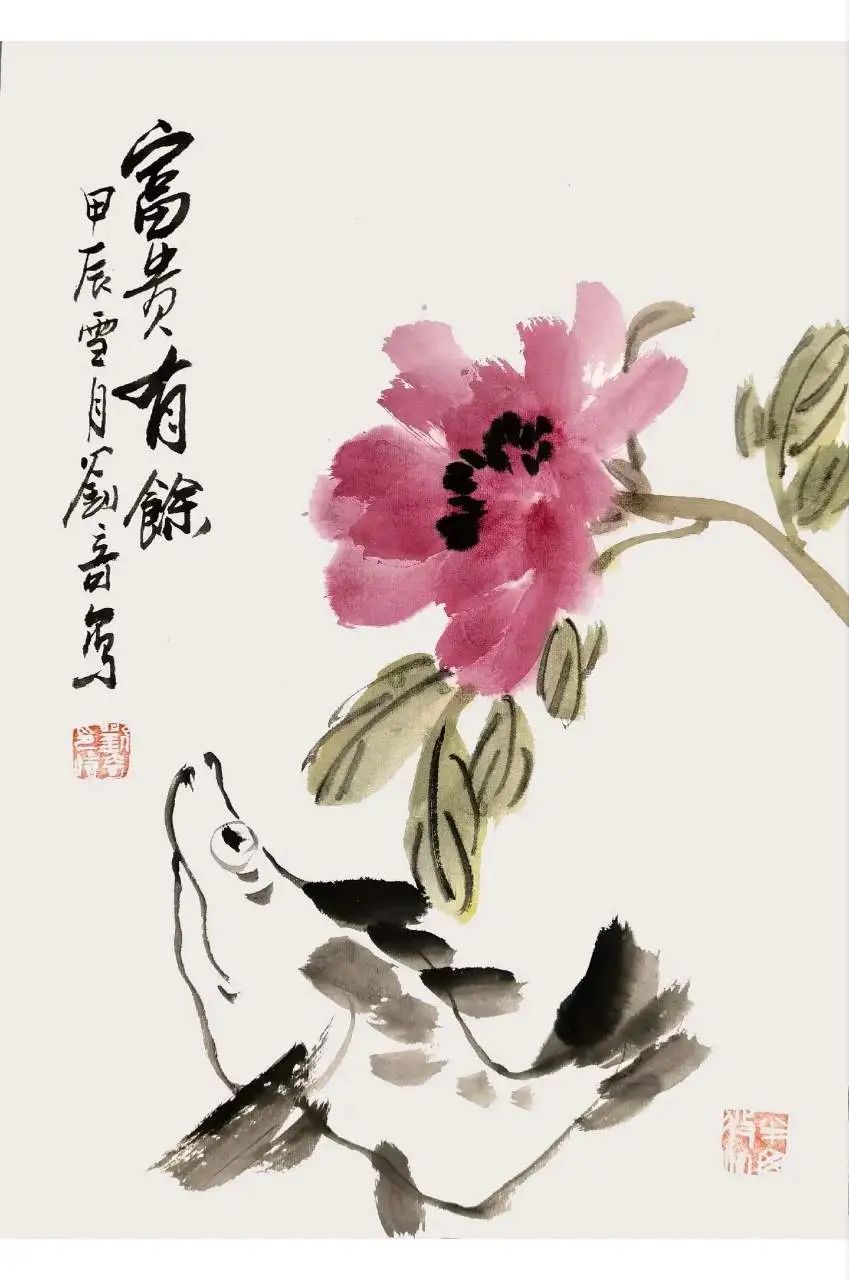 富贵有餘
甲辰雪月劉音写